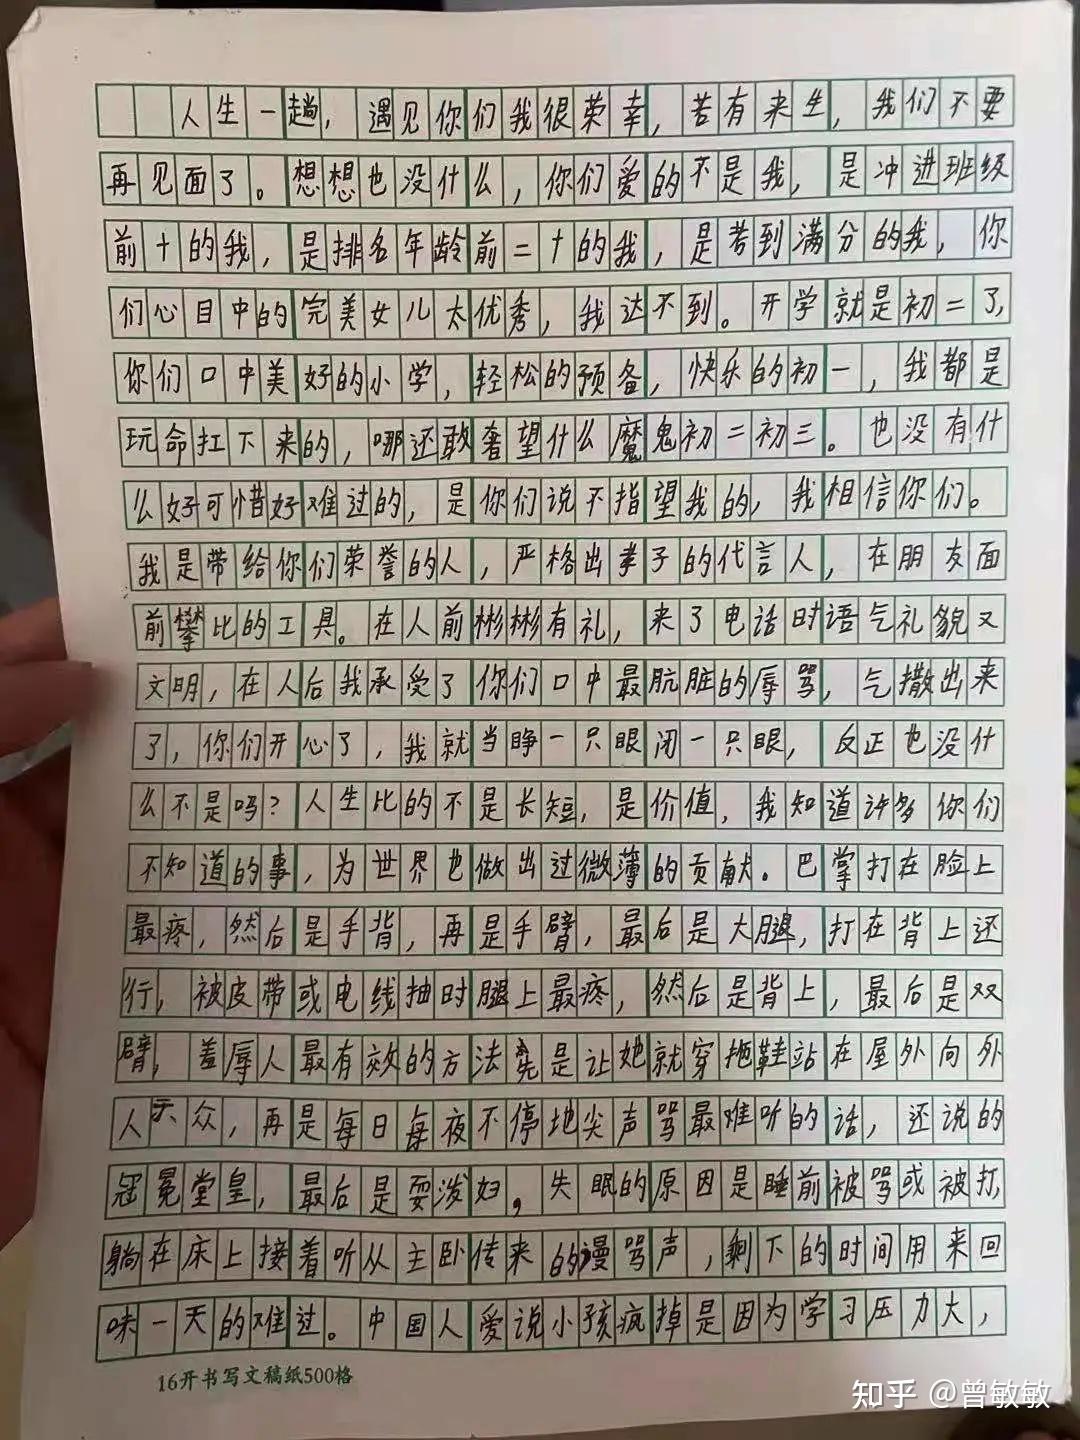 人生一趟，遇见你们我很荣幸，若有来生，我们不要
再见面了。想想也没什么，你们爱的不是我，是冲进班级
前十的我，是排名年龄前二十的我，是考到满分的我，你
们心目中的完美女儿太优秀，我达不到。开学就是初二了，
你们口中美好的小学，轻松的预备，快乐的初一，我都是
玩命扛下来的，哪还敢奢望什么魔鬼初二初三。也没有什
么好可惜好难过的，是你们说不指望我的，我相信你们。
我是带给你们荣誉的人，严格出孝子的代言人，在朋友面
前攀比的工具。在人前彬彬有礼，来了电话时语气礼貌又
文明，在人后我承受了你们口中最肮脏的辱骂，气撒出来
了，你们开心了，我就当睁一只眼闭一只眼，反正也没什
么不是吗？人生比的不是长短，是价值，我知道许多你们
不知道的事，为世界也做出过微薄的贡献。巴掌打在脸上
最疼，然后是手背，再是手臂，最后是大腿，打在背上还
行，被皮带或电线抽时腿上最疼，然后是背上，最后是双
臂，羞辱人最有效的方法先是让她就穿拖鞋站在屋外向外
人示众，再是每日每夜不停地尖声骂最难听的话，还说的
冠冕堂皇，最后是耍泼妇。失眠的原因是睡前被骂或被打，
躺在床上接着听从主卧传来的谩骂声，剩下的时间用来回
味一天的难过。中国人爱说小孩疯掉是因为学习压力大，
16开书写文稿纸500格
知乎 @曾敏敏